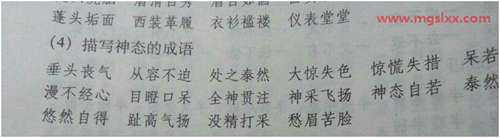 www.mgslxx.com
蓬头垢面 西装革履 衣衫褴褛 仪表堂堂
(4) 描写神态的成语
垂头丧气 从容不迫 处之泰然 大惊失色 惊慌失措 呆若
漫不经心 目瞪口呆 全神贯注 神采飞扬 神态自若 泰然
悠然自得 趾高气扬 没精打采 愁眉苦脸